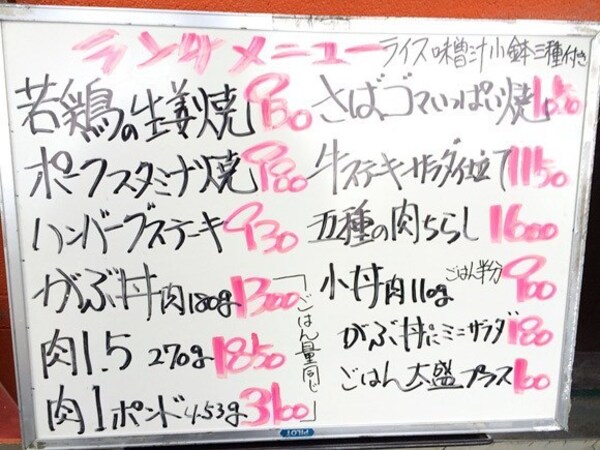 ランチメニュー ライス味噌汁小鉢三種付き
若鶏の生姜焼 930
ポークスタミナ焼 980
ハンバーグステーキ 930
がぶ丼 肉180g 1300
肉1.5 270g 1850
肉1ポンド 453g 3100
「ごはん量同じ」
さばゴマいっぱい焼 1050
牛ステーキサラダ仕立て 1150
五種の肉ちらし 1600
小丼 肉110g ごはん半分 900
がぶ丼にミニサラダ 180
ごはん大盛プラス 100
PILOT